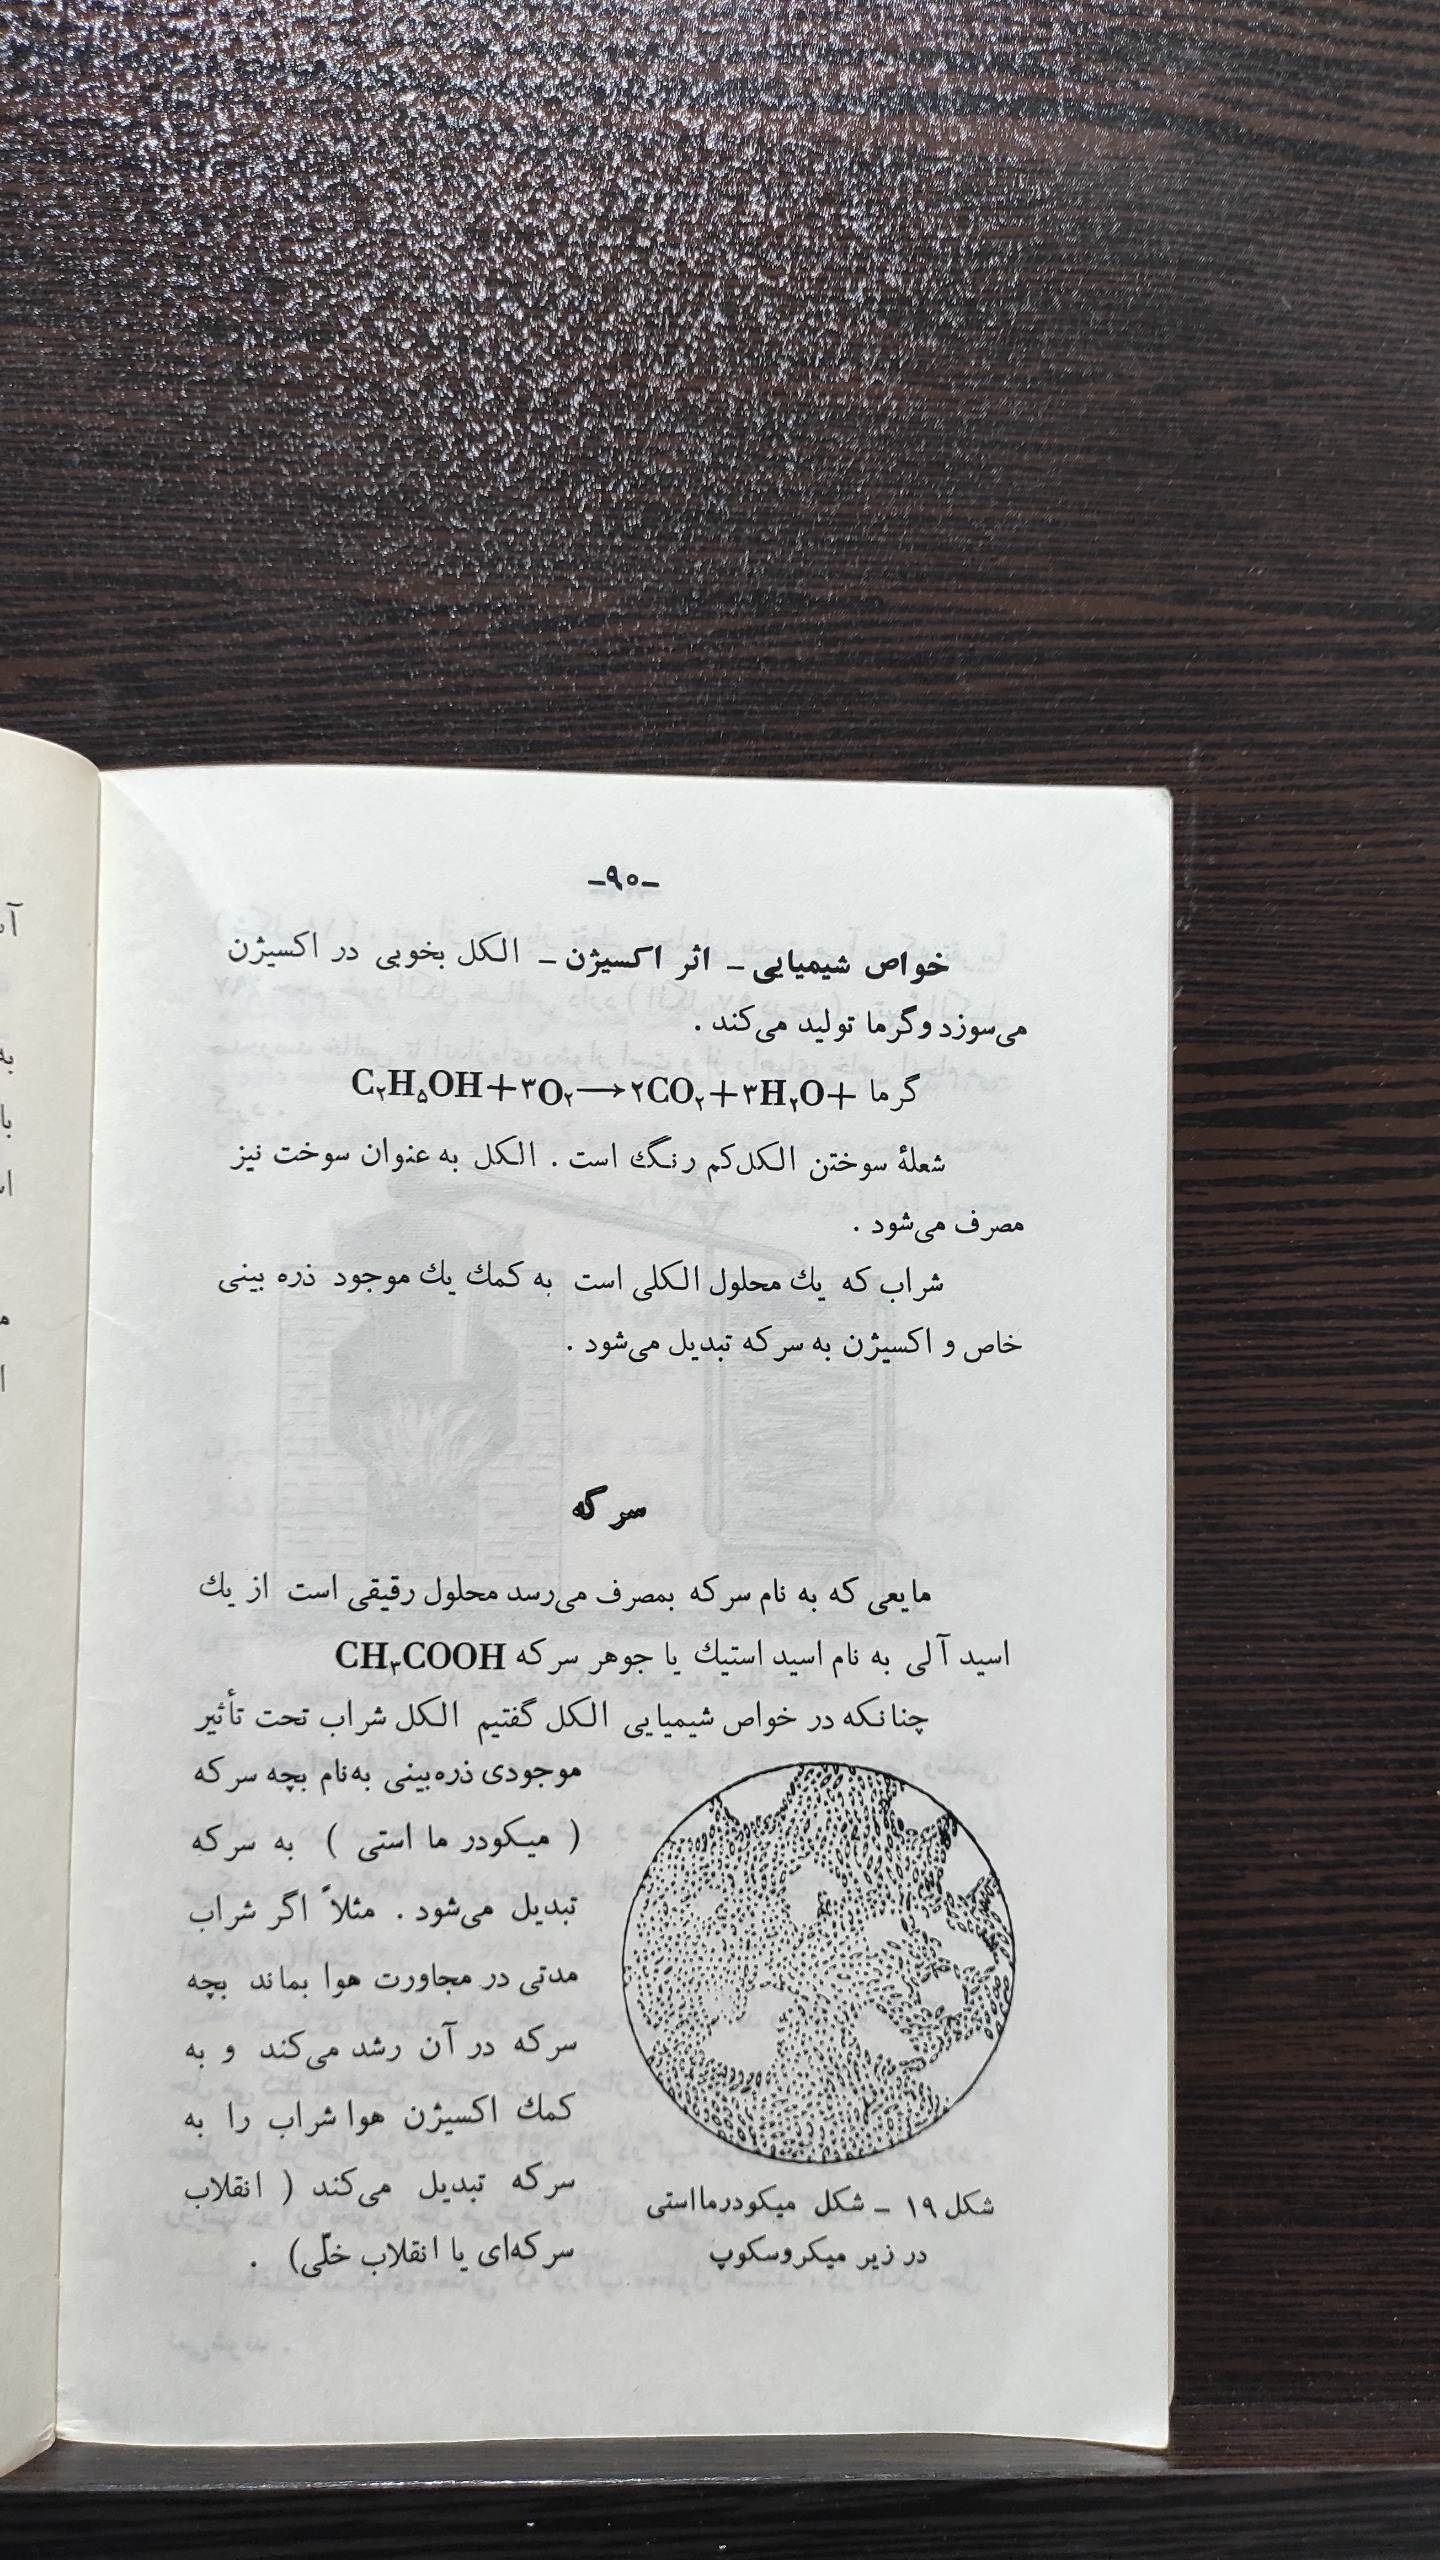 -۹۰-
خواص شیمیایی - اثر اکسیژن - الکل بخوبی در اکسیژن
می‌سوزد و گرما تولید می‌کند .
C₂H₅OH+۳O₂⟶۲CO₂+۳H₂O+ گرما
شعلهٔ سوختن الکل کم رنگ است . الکل به عنوان سوخت نیز
مصرف می‌شود .
شراب که یك محلول الکلی است به کمك یك موجود ذره بینی
خاص و اکسیژن به سرکه تبدیل می‌شود .
سرکه
مایعی که به نام سرکه بمصرف می‌رسد محلول رقیقی است از یك
اسید آلی به نام اسید استیك یا جوهر سرکه CH₃COOH
چنانکه در خواص شیمیایی الکل گفتیم الکل شراب تحت تأثیر
موجودی ذره‌بینی به‌نام بچه سرکه
( میکودر ما استی ) به سرکه
تبدیل می‌شود . مثلاً اگر شراب
مدتی در مجاورت هوا بماند بچه
سرکه در آن رشد می‌کند و به
کمك اکسیژن هوا شراب را به
سرکه تبدیل می‌کند ( انقلاب
سرکه‌ای یا انقلاب خلّی) .
شکل ۱۹ - شکل میکودرمااستی
در زیر میکروسکوپ